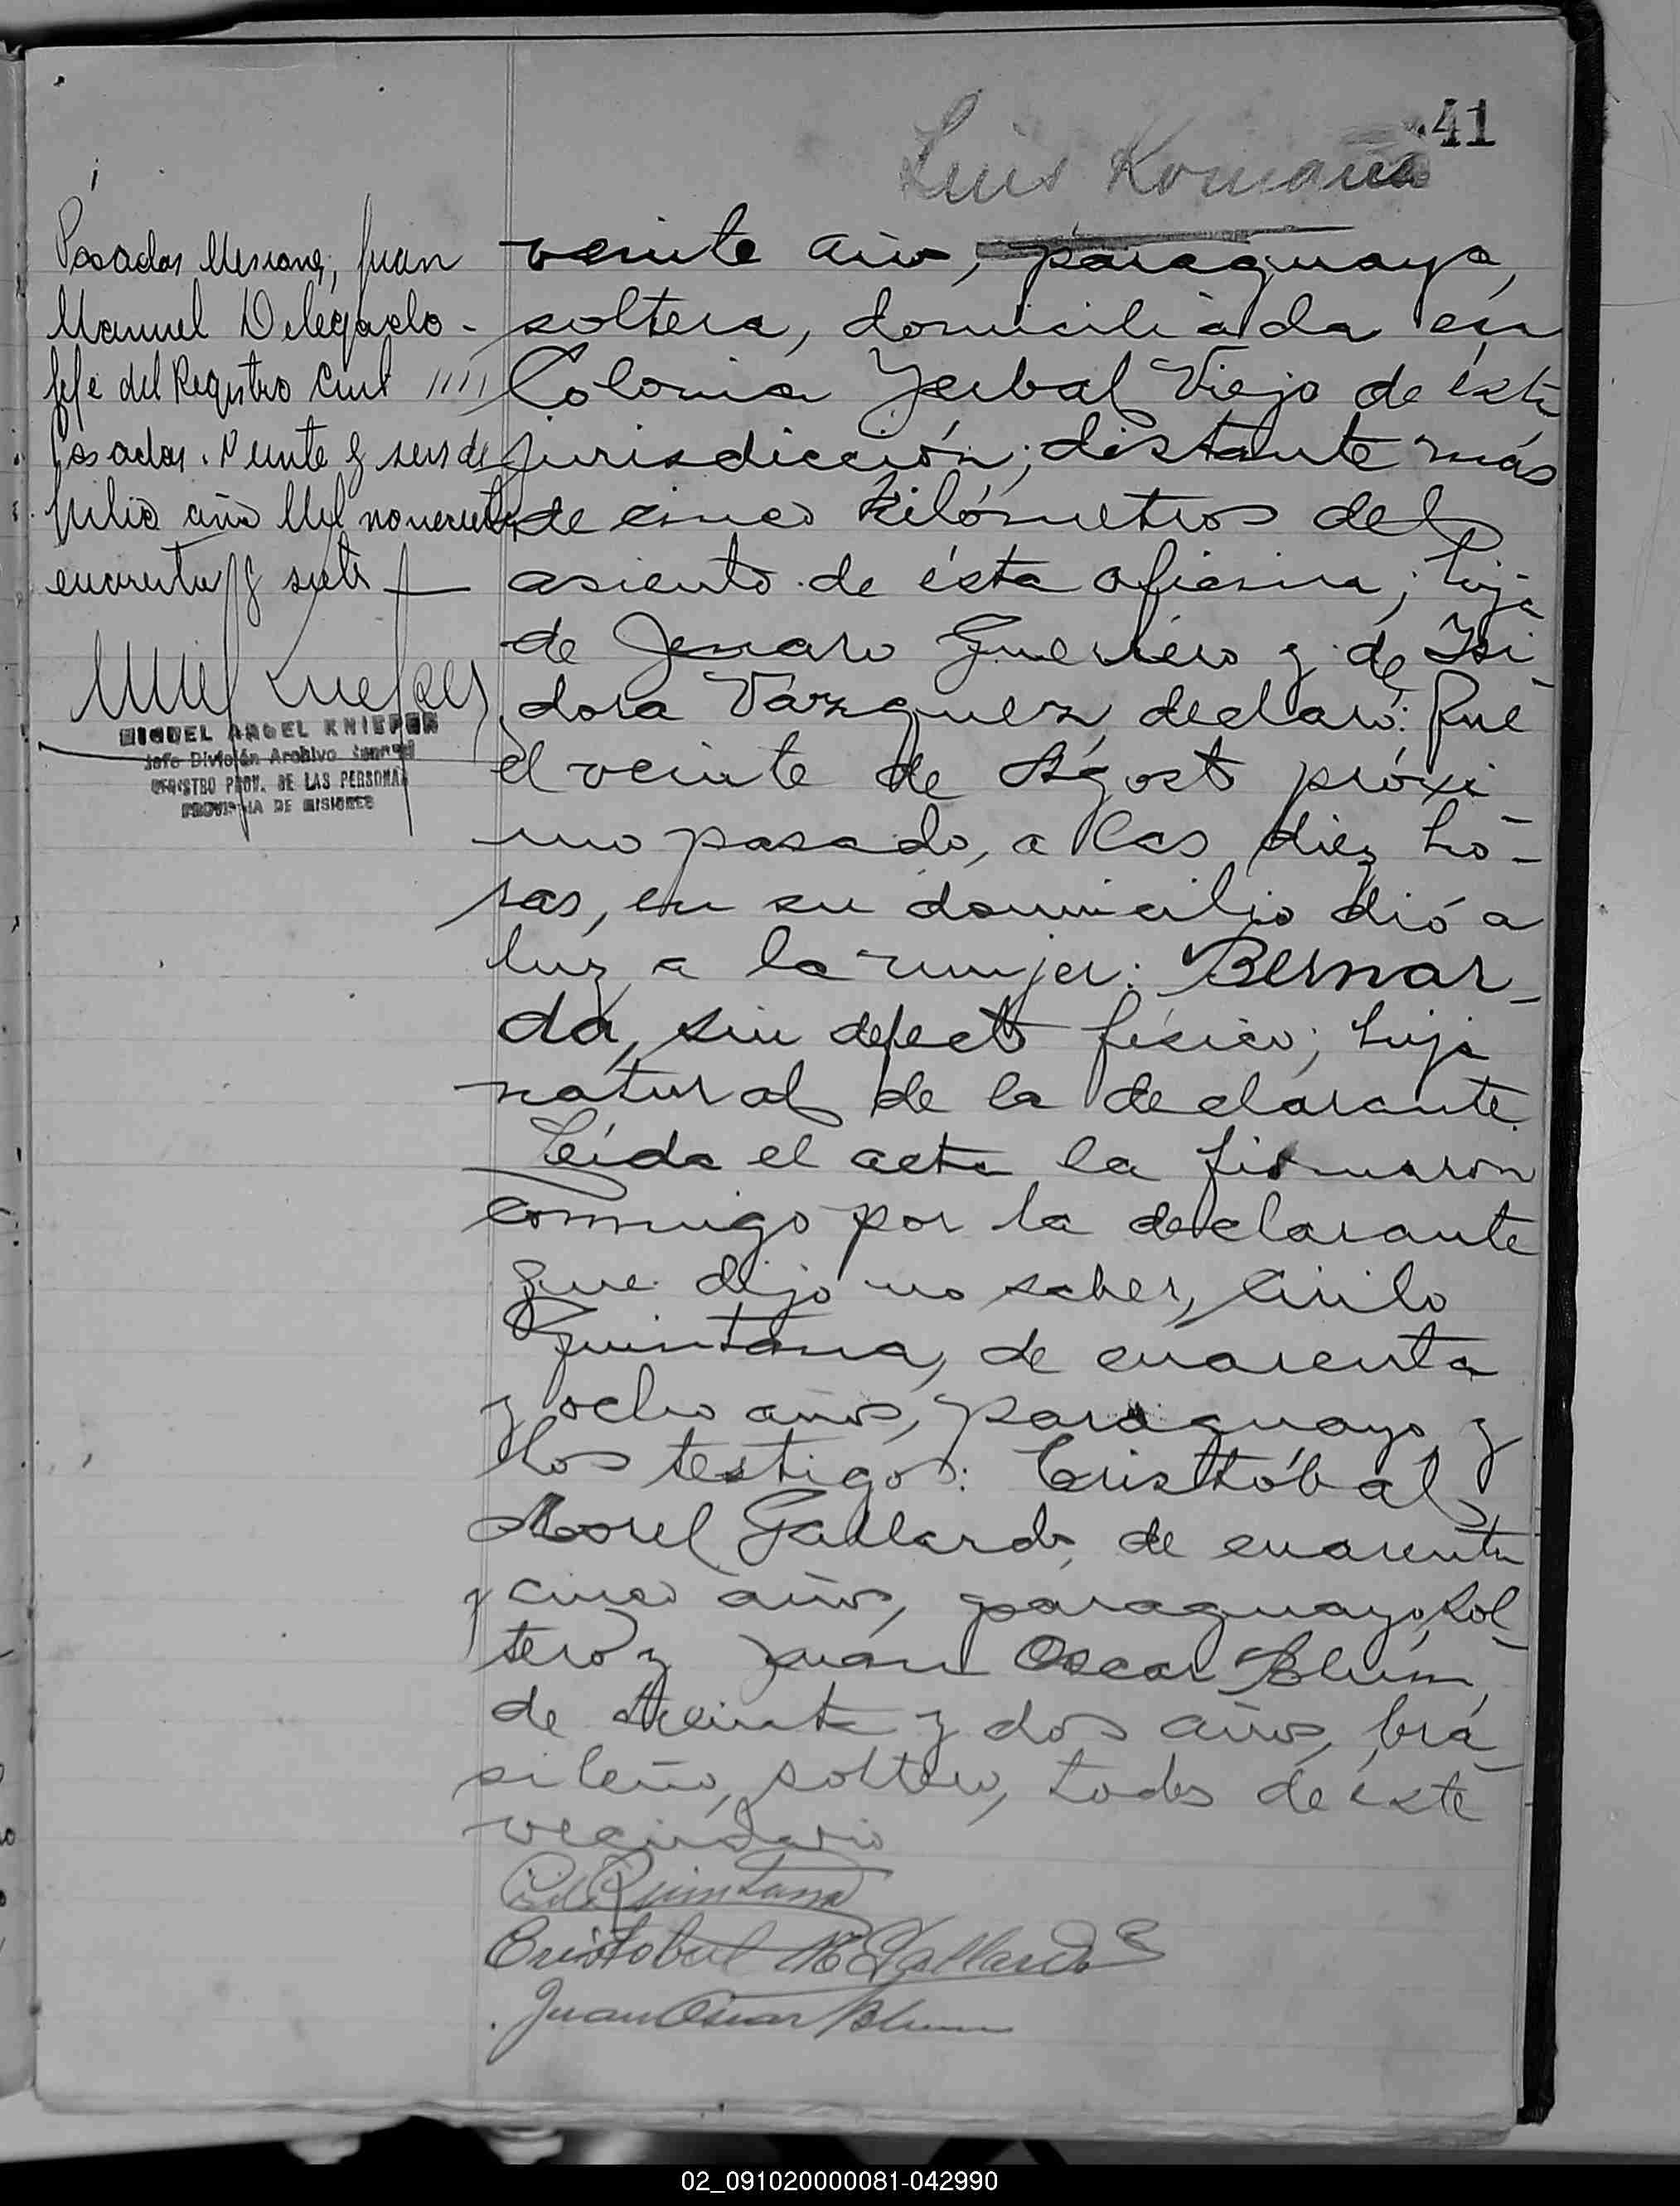 41
Luis Romaña
Posadas Misiones, Juan
Manuel Delegado -
Jefe del Registro Civil ////
Posadas. Veinte y seis de
Julio año Mil novecientos
cuarenta y siete
MIGUEL ANGEL KNIEPER
Jefe División Archivo General
REGISTRO PROV. DE LAS PERSONAS
PROVINCIA DE MISIONES
veinte años, paraguaya,
soltera, domiciliada en
Colonia Yerbal Viejo de ésta
jurisdicción; distante más
de cinco kilómetros del
asiento de ésta oficina; hija
de Jenaro Guerrero y de Isi-
dora Vazquez, declaró: Que
el veinte de Agosto próxi
mo pasado, a las diez ho-
ras, en su domicilio dió a
luz a la mujer: Bernar-
da, sin defecto físico; hija
natural de la declarante.
Leída el acta la firmaron
conmigo por la declarante
que dijo no saber, Cirilo
Quintana, de cuarenta
y ocho años, paraguayo y
los testigos: Cristóbal
Morel Gallardo, de cuarenta
y cinco años, paraguayo, sol-
tero y Juan Oscar Blum,
de treinta y dos años, bra-
sileño, soltero, todos de éste
vecindario
Cirilo Quintana
Cristobal M Gallardo
Juan Oscar Blum
02_091020000081-042990